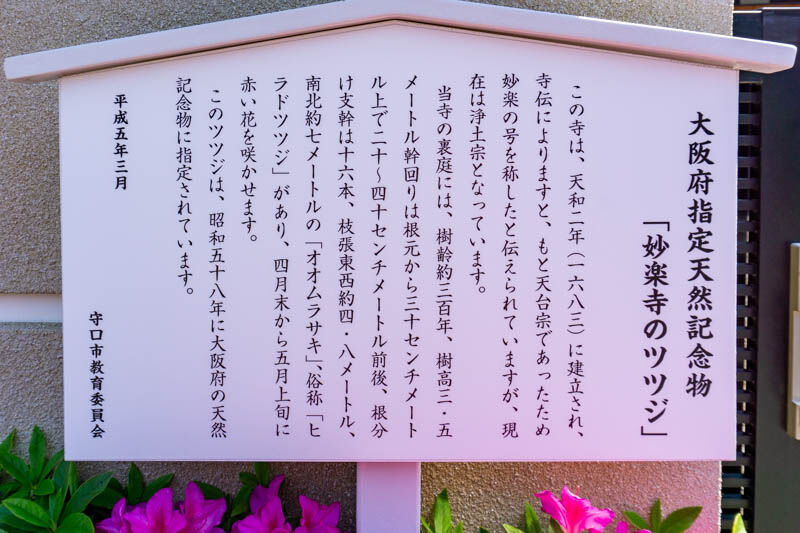 大阪府指定天然記念物
「妙楽寺のツツジ」
この寺は、天和二年(一六八三)に建立され、
寺伝によりますと、もと天台宗であったため
妙楽の号を称したと伝えられていますが、現
在は浄土宗となっています。
当寺の裏庭には、樹齢約三百年、樹高三・五
メートル幹回りは根元から三十センチメート
ル上で二十〜四十センチメートル前後、根分
け支幹は十六本、枝張東西約四・八メートル、
南北約七メートルの「オオムラサキ」、俗称「ヒ
ラドツツジ」があり、四月末から五月上旬に
赤い花を咲かせます。
このツツジは、昭和五十八年に大阪府の天然
記念物に指定されています。
平成五年三月
守口市教育委員会